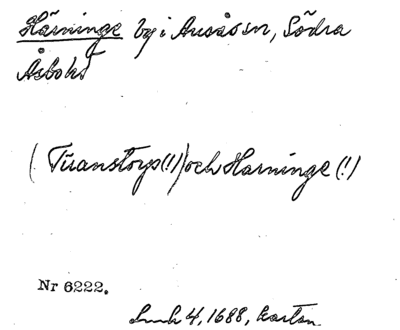 Härninge by i Ausås sn, Södra
Åsbohd
(Tüanstorp(!)) och Harninge (!)
Nr 6222.
4, 1688, kartan